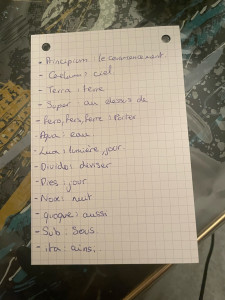 - Principium : le commencement.
- Caelum : ciel
- Terra : terre
- Super : au dessus de
- Fero, fers, ferre : Porter
- Aqua : eau.
- Lux : lumière, jour.
- Divido : diviser
- Dies : jour
- Nox : nuit
- quoque : aussi
- Sub : Sous.
- ita : ainsi,